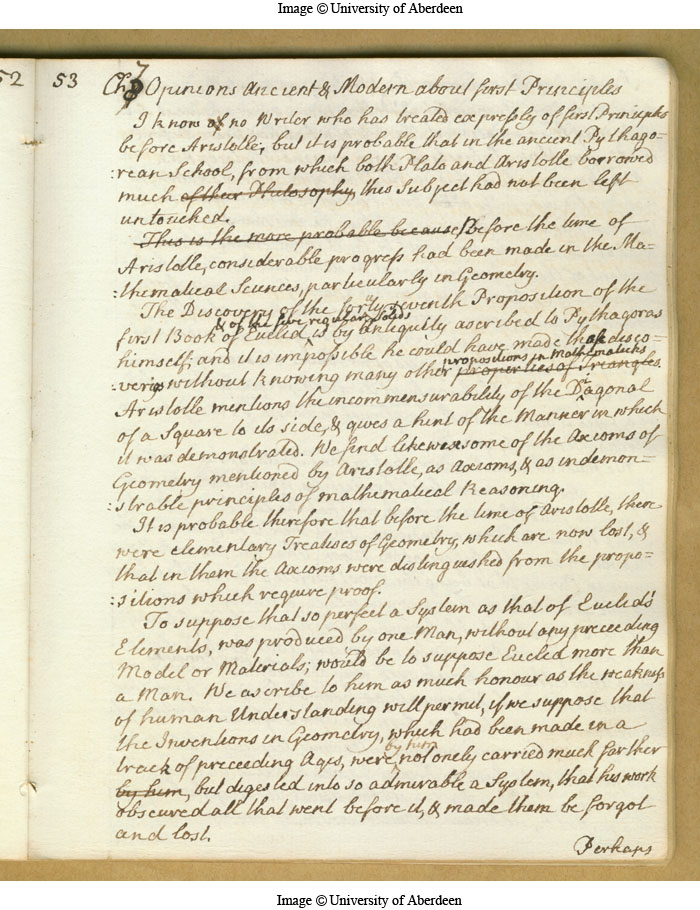 Image © University of Aberdeen
52 53 Ch 7 Opinions Ancient & Modern about first Principles
I know of no Writer who has treated expressly of first Principles
before Aristotle; but it is probable that in the ancient Pythago=
:rean School, from which both Plato and Aristotle borrowed
much of their Philosophy, this Subject had not been left
untouched.
This is the more probable because Before the time of
Aristotle, considerable progress had been made in the Ma=
:thematical Sciences, particularly in Geometry.
The Discovery of the forty seventh Proposition of the
& of the five regular solids
first Book of Euclid, is by antiquity ascribed to Pythagoras
himself; and it is impossible he could have made those disco=
propositions in Mathematicks
verys without knowing many other properties of Triangles.
Aristotle mentions the incommensurability of the Diagonal
of a Square to its side, & gives a hint of the Manner in which
it was demonstrated. We find likewise some of the Axioms of
Geometry mentioned by Aristotle, as Axioms, & as indemon=
:strable principles of mathematical Reasoning.
It is probable therefore that before the time of Aristotle, there
were elementary Treatises of Geometry, which are now lost, &
that in them the Axioms were distinguished from the propo=
:sitions which require proof.
To suppose that so perfect a System as that of Euclid's
Elements, was produced by one Man, without any preceeding
Model or Materials; would be to suppose Euclid more than
a Man. We ascribe to him as much honour as the weakness
of human Understanding will permit, if we suppose that
the Inventions in Geometry, which had been made in a
by him
track of preceeding Ages, were not onely carried much farther
by him, but digested into so admirable a System, that his work
obscured all that went before it, & made them be forgot
and lost.
Perhaps
Image © University of Aberdeen